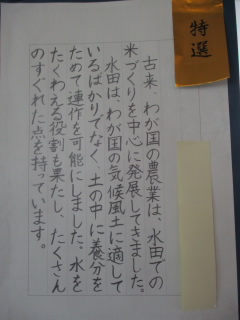 特選
古来、わが国の農業は、水田での
米づくりを中心に発展してきました。
水田は、わが国の気候風土に適して
いるばかりでなく、土の中に養分を
ためて連作を可能にしました。水を
たくわえる役割も果たし、たくさん
のすぐれた点を持っています。